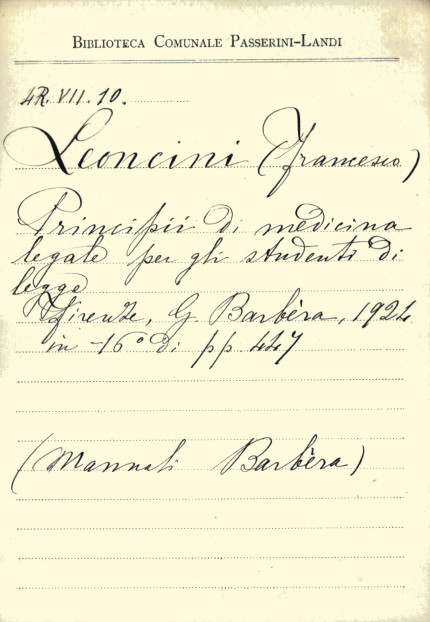 BIBLIOTECA COMUNALE PASSERINI-LANDI
4R. VII. 10.
Leoncini (Francesco)
Principii di medicina
legale per gli studenti di
legge
Firenze, G. Barbèra, 1924
in -16° di pp. 447
(Manuali Barbèra)